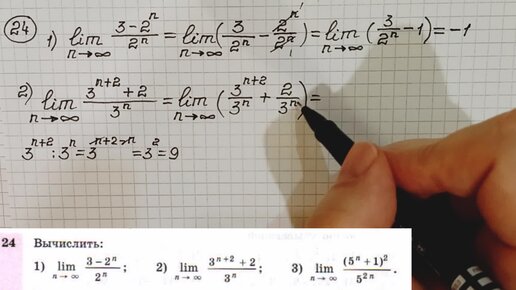 24
1) lim n→∞ (3-2ⁿ)/2ⁿ = lim n→∞ (3/2ⁿ - 2ⁿ/2ⁿ) = lim n→∞ (3/2ⁿ - 1) = -1
2) lim n→∞ (3ⁿ⁺²+2)/3ⁿ = lim n→∞ (3ⁿ⁺²/3ⁿ + 2/3ⁿ) =
3ⁿ⁺² : 3ⁿ = 3ⁿ⁺²⁻ⁿ = 3² = 9
24 Вычислить:
1) lim n→∞ (3-2ⁿ)/2ⁿ; 2) lim n→∞ (3ⁿ⁺²+2)/3ⁿ; 3) lim n→∞ (5ⁿ+1)²/5²ⁿ.